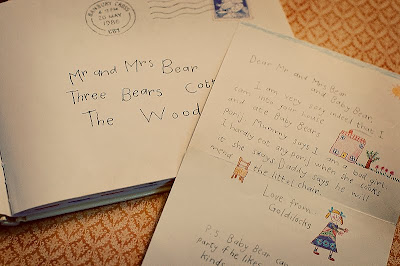 BANBURY CROSS
4 - PM
20 MAY
1986
Mr and Mrs Bear
Three Bears Cott
The Wood
Dear Mr and Mrs Bear
and Baby Bear
I am very sorry indeed that I
came into your house
and ate Baby Bears
porij. Mummy says I am a bad girl
I hardly eat any porij when she cooks
it she says. Daddy says he will
mend the littel chair.
Love from
Goldilocks
P.S. Baby Bear can
party if he likes
kinds